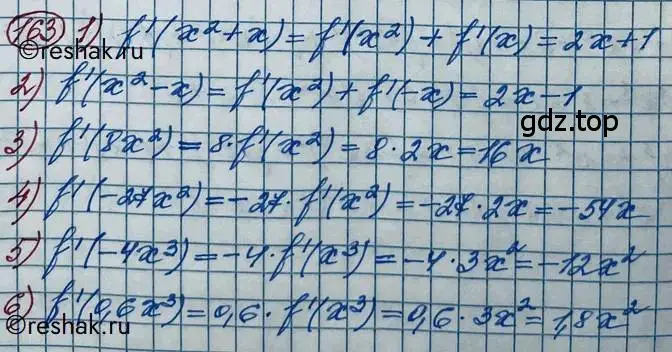 163 1) f'(x²+x) = f'(x²) + f'(x) = 2x+1
2) f'(x²-x) = f'(x²) + f'(-x) = 2x-1
gdz.top
3) f'(8x²) = 8·f'(x²) = 8·2x = 16x
4) f'(-27x²) = -27·f'(x²) = -27·2x = -54x
5) f'(-4x³) = -4·f'(x³) = -4·3x² = -12x²
6) f'(0,6x³) = 0,6·f'(x³) = 0,6·3x² = 1,8x²
©reshak.ru